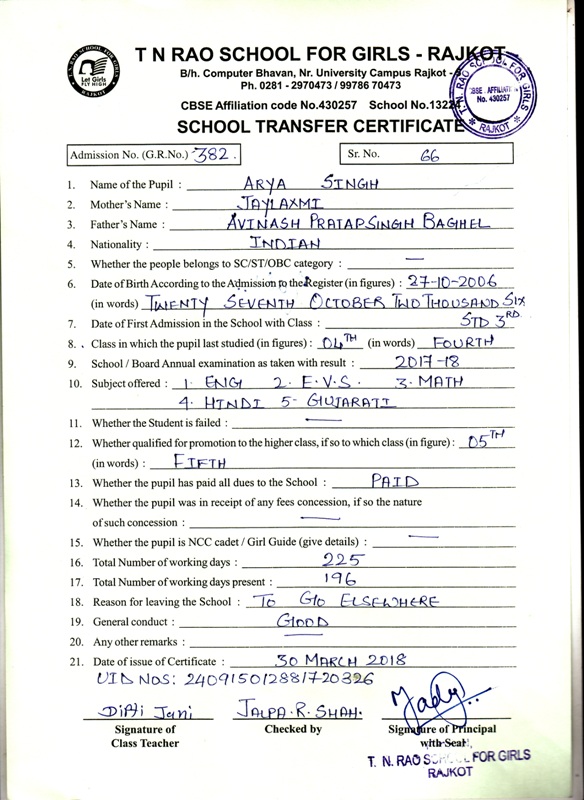 T. N. RAO SCHOOL FOR GIRLS
Let Girls
FLY HIGH
RAJKOT
T N RAO SCHOOL FOR GIRLS - RAJKOT
B/h. Computer Bhavan, Nr. University Campus Rajkot -
Ph. 0281 - 2970473 / 99786 70473
CBSE Affiliation code No.430257 School No.13224
T. N. RAO SCHOOL FOR GIRLS
CBSE AFFILIATION
No. 430257
* RAJKOT *
SCHOOL TRANSFER CERTIFICATE
Admission No. (G.R.No.) 382. Sr. No. 66
1. Name of the Pupil : ARYA SINGH
2. Mother's Name : JAYLAXMI
3. Father's Name : AVINASH PRATAPSINGH BAGHEL
4. Nationality : INDIAN
5. Whether the people belongs to SC/ST/OBC category : —
6. Date of Birth According to the Admission to the Register (in figures) : 27-10-2006
(in words) TWENTY SEVENTH OCTOBER TWO THOUSAND SIX
7. Date of First Admission in the School with Class : STD 3RD
8. Class in which the pupil last studied (in figures) : 04TH (in words) FOURTH
9. School / Board Annual examination as taken with result : 2017-18
10. Subject offered : 1. ENG 2. E.V.S. 3. MATH
4. HINDI 5- GUJARATI
11. Whether the Student is failed : —
12. Whether qualified for promotion to the higher class, if so to which class (in figure) : 05TH
(in words) : FIFTH
13. Whether the pupil has paid all dues to the School : PAID
14. Whether the pupil was in receipt of any fees concession, if so the nature
of such concession : —
15. Whether the pupil is NCC cadet / Girl Guide (give details) : —
16. Total Number of working days : 225
17. Total Number of working days present : 196
18. Reason for leaving the School : TO GO ELSEWHERE
19. General conduct : GOOD
20. Any other remarks : —
21. Date of issue of Certificate : 30 MARCH 2018
UID NOS: 240915012881720326
Dipti Jani JALPA.R.SHAH.
Signature of Checked by Signature of Principal
Class Teacher with Seal
T. N. RAO SCHOOL FOR GIRLS
RAJKOT